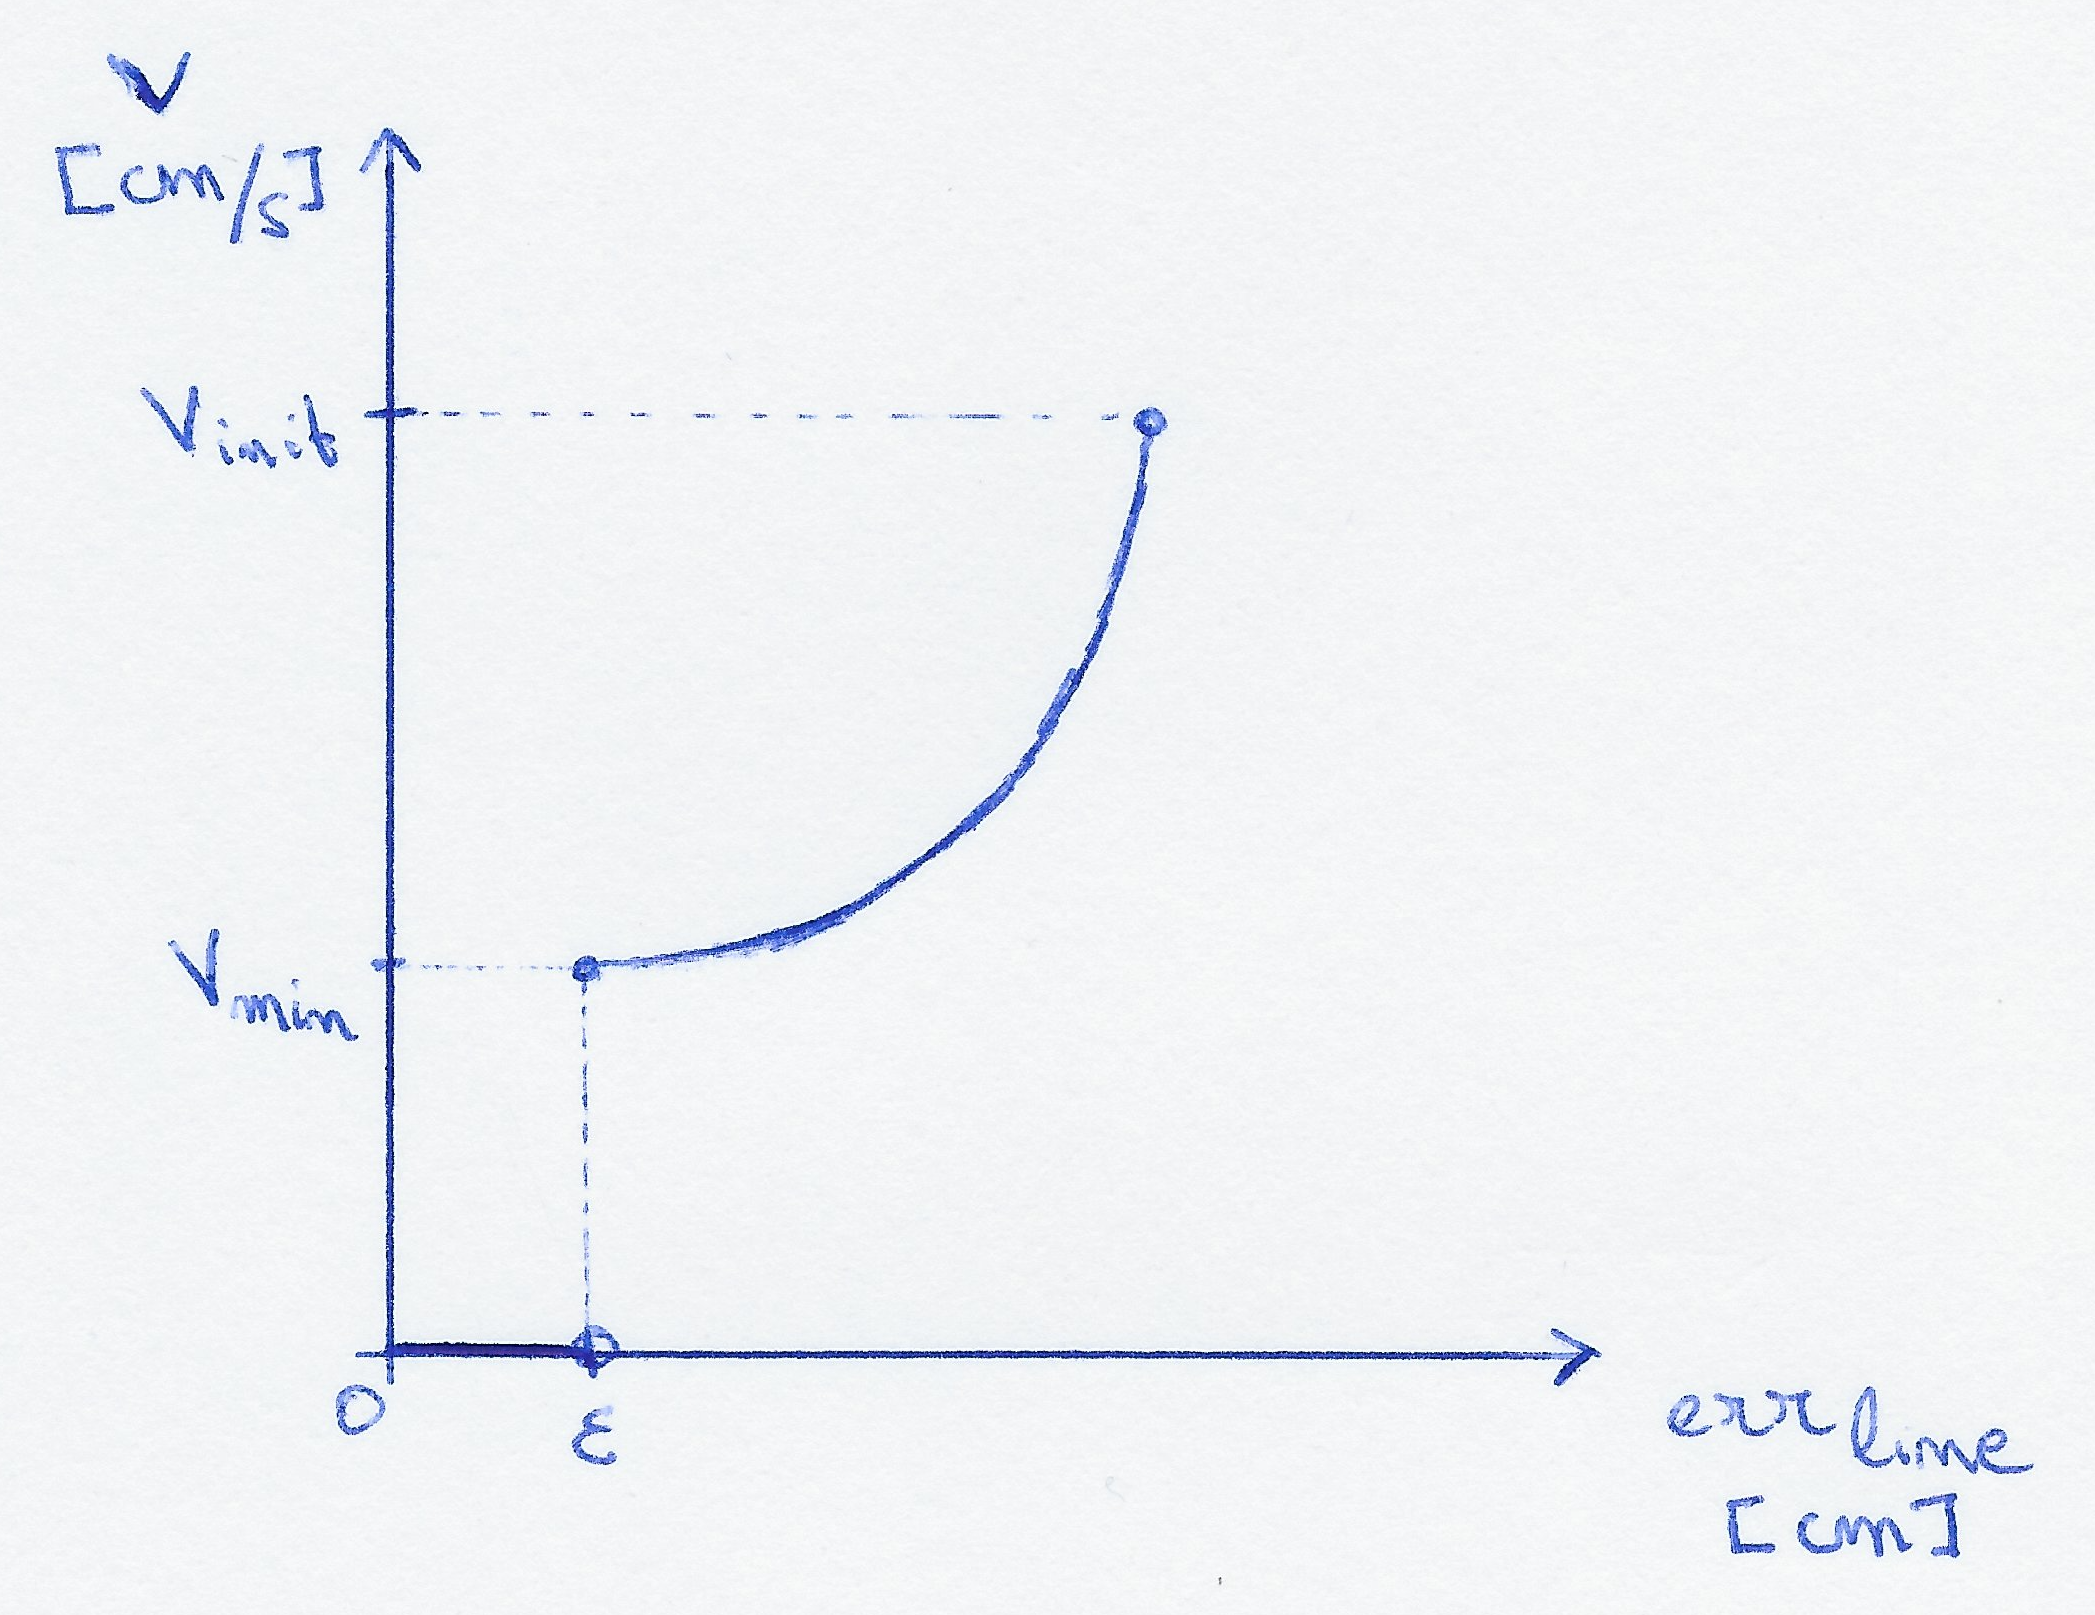 v
[cm/s]
Vinit
Vmin
0
ε
err line
[cm]